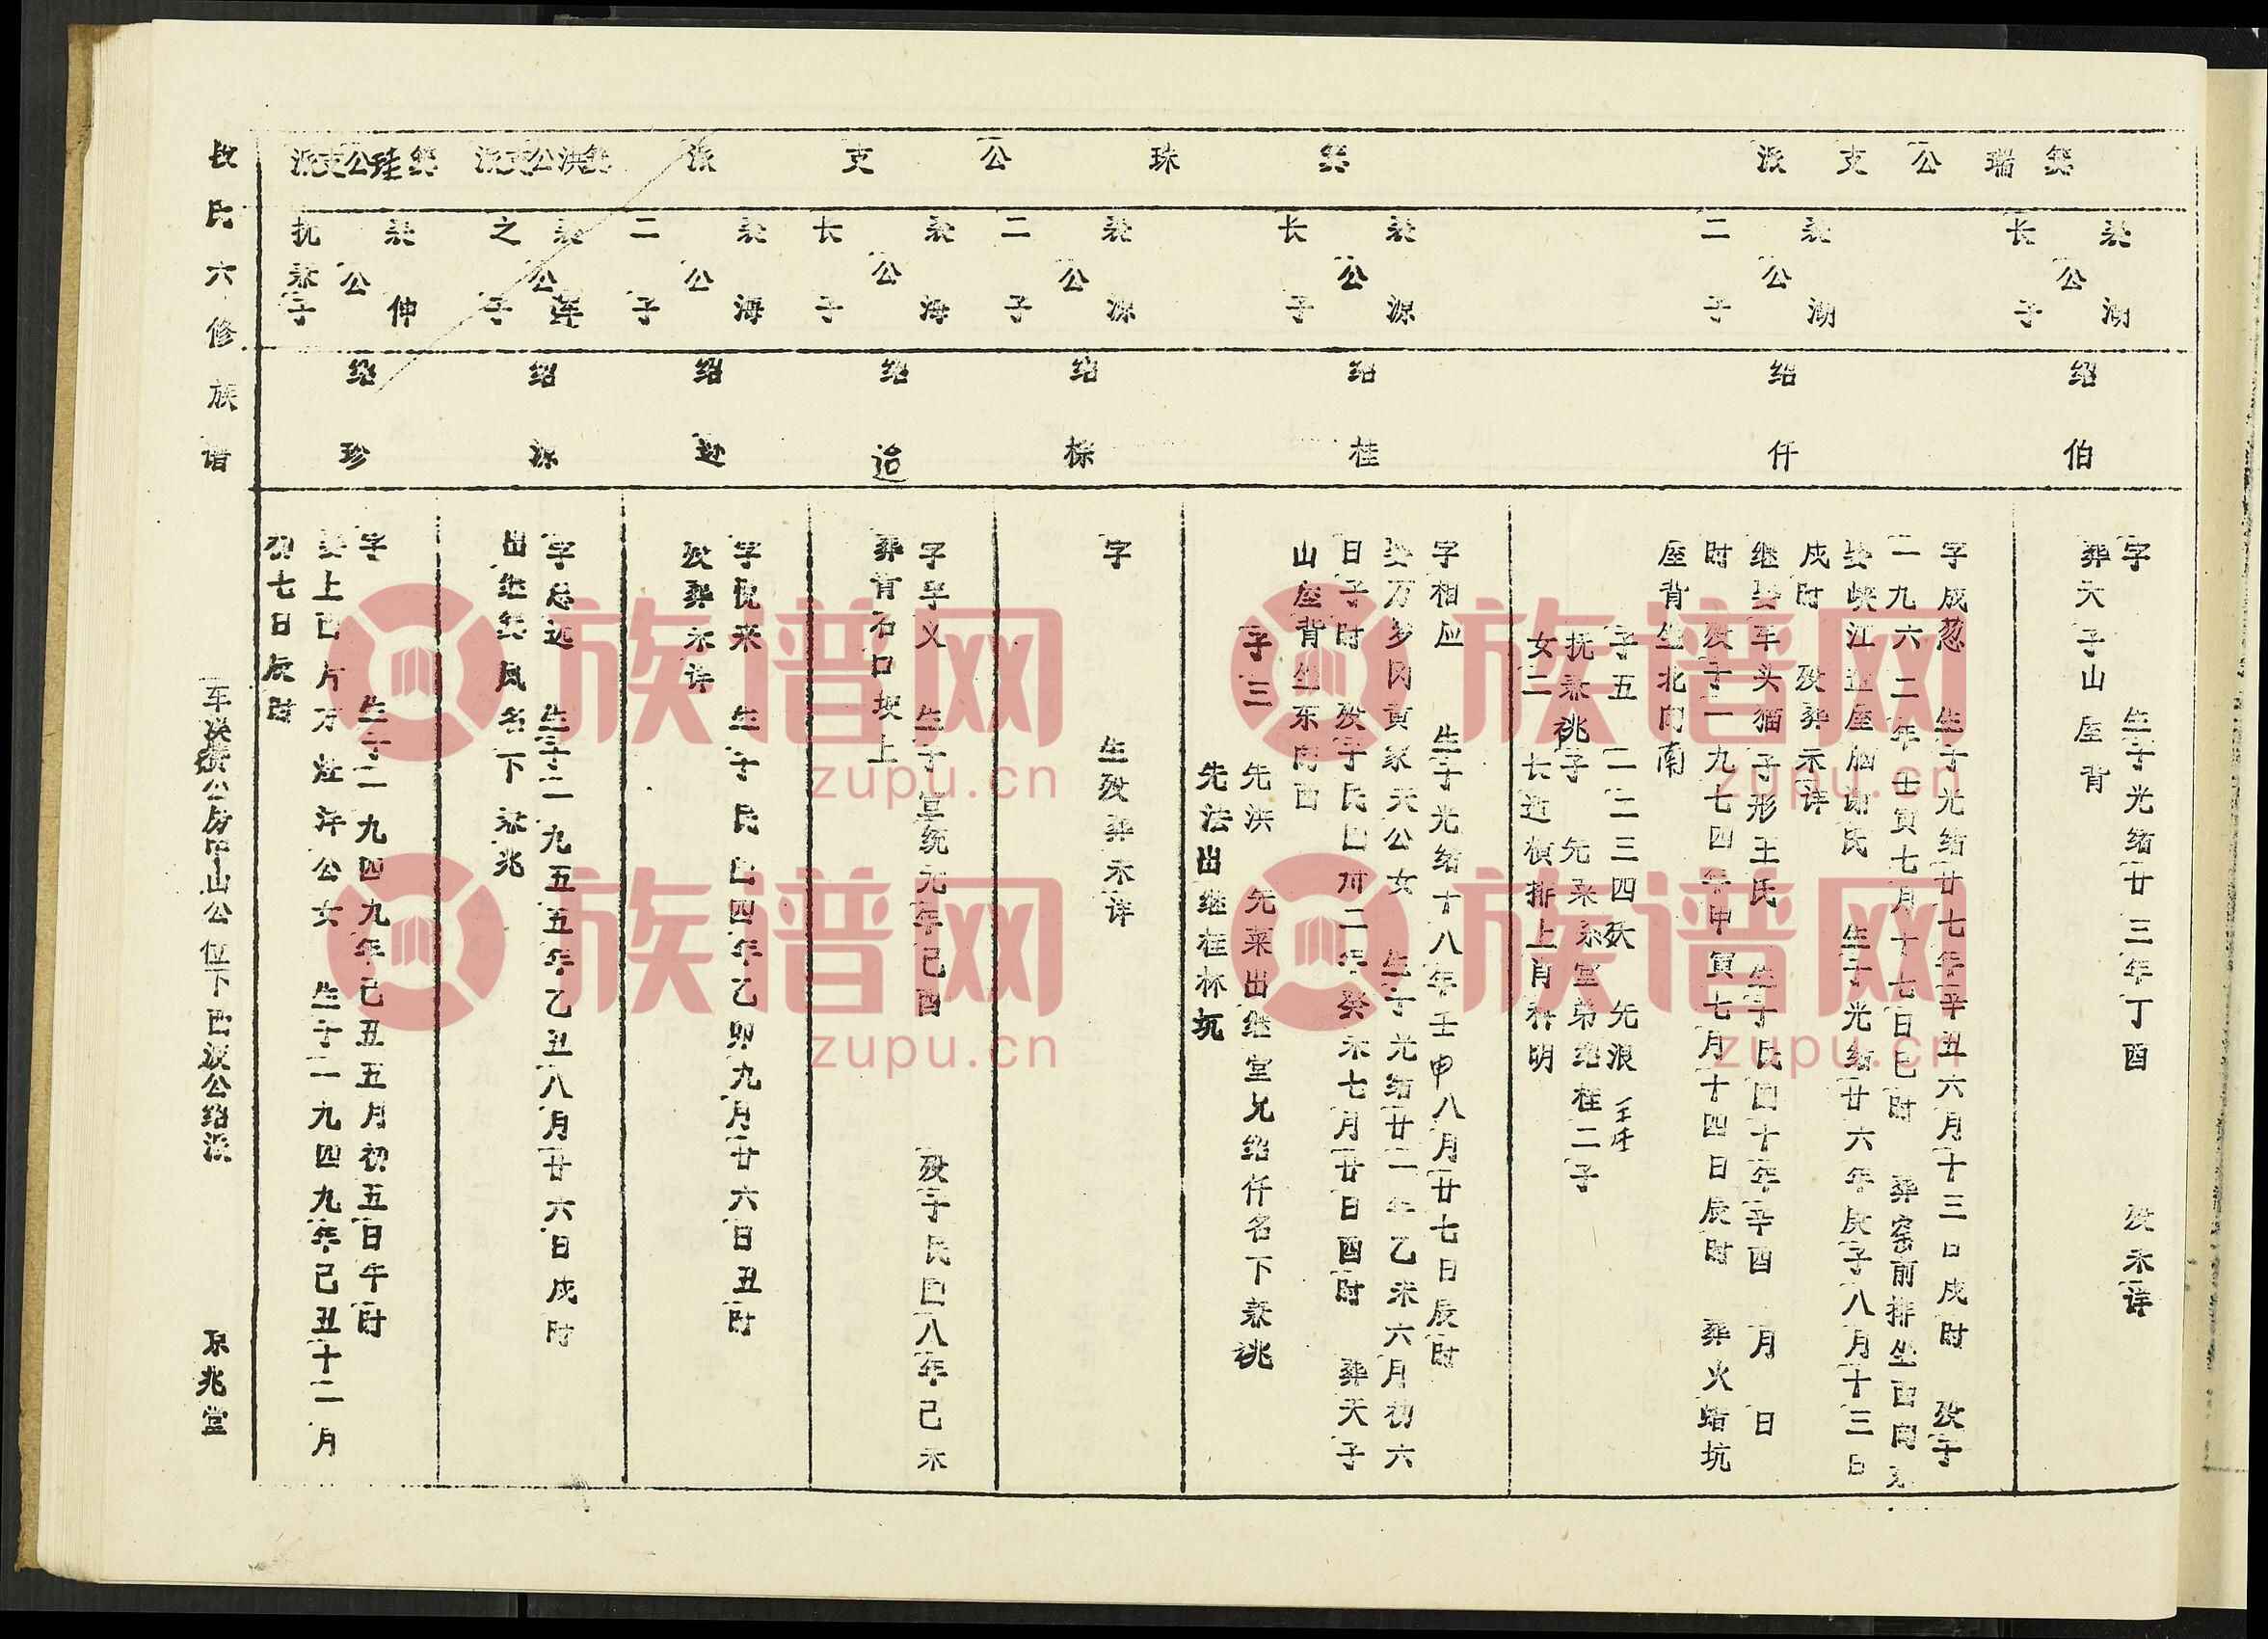 公瑞公支派
长子
公湖
绍伯
字 生于光绪廿三年丁酉 殁未详
葬天子山屋背
二子
公湖
绍仟
字成忽 生于光绪廿七年辛丑六月十三日戌时 殁于
一九六二年壬寅七月十七日巳时 葬窑前排坐西向东
娶峡江 屋脑 氏 生于光绪廿六年庚子八月十三日
戌时 殁葬未详
继娶车头猫子形王氏 生于民国十年辛酉 月 日
时殁于一九七四年甲寅七月十四日辰时 葬火蜡坑
屋背坐北向南
子五 一二三四殀 先浪
抚承祧子 先来系堂弟绍桂二子
女二 长适横排上肖科明
珠公支派
长子
公源
绍桂
字相应 生于光绪十八年壬申八月廿七日辰时
娶万乡冈黄家天公女 生于光绪廿一年乙未六月初六
日子时 殁于民国卅二年癸未七月廿日酉时 葬天子
山屋背坐东向西
子三 先洪 先菜出继堂兄绍仟名下承祧
先法出继桂林坑
二子
公源
绍
字 生殁葬未详
长子
公海
绍迨
字学义 生于宣统元年己酉 殁于民国八年己未
葬背石口坎上
二子
公海
绍
字悦来 生于民国四年乙卯九月廿六日丑时
殁葬未详
洪公支派
之子
公莲
绍源
字总远 生于一九五五年乙丑八月廿六日戌时
出继 凤名下承兆
公支派
抚承子
公伸
绍珍
字 生于一九四九年己丑五月初五日午时
娶上西片万灶许公女 生于一九四九年己丑十二月
初七日辰时
氏六修族谱
公房 山公位下 公绍派
京兆堂
族谱网
zupu.cn
族谱网
zupu.cn
族谱网
zupu.cn
族谱网
zupu.cn